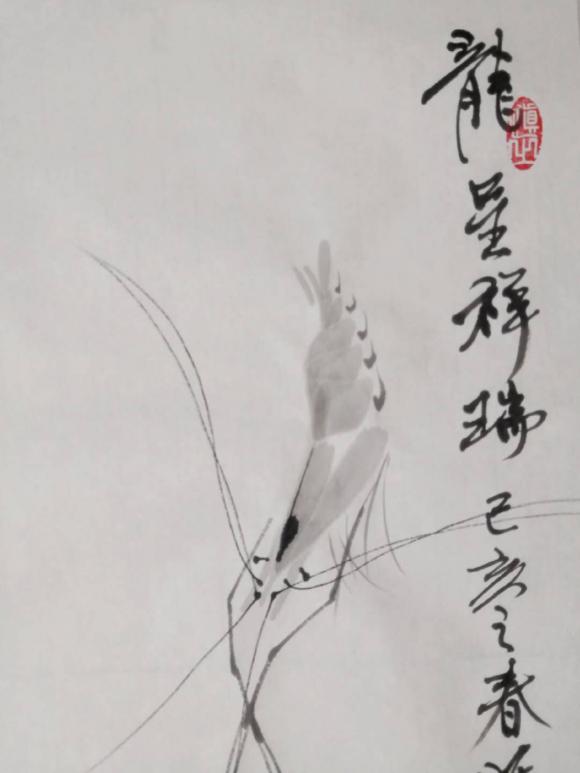 龍呈祥瑞 己亥之春